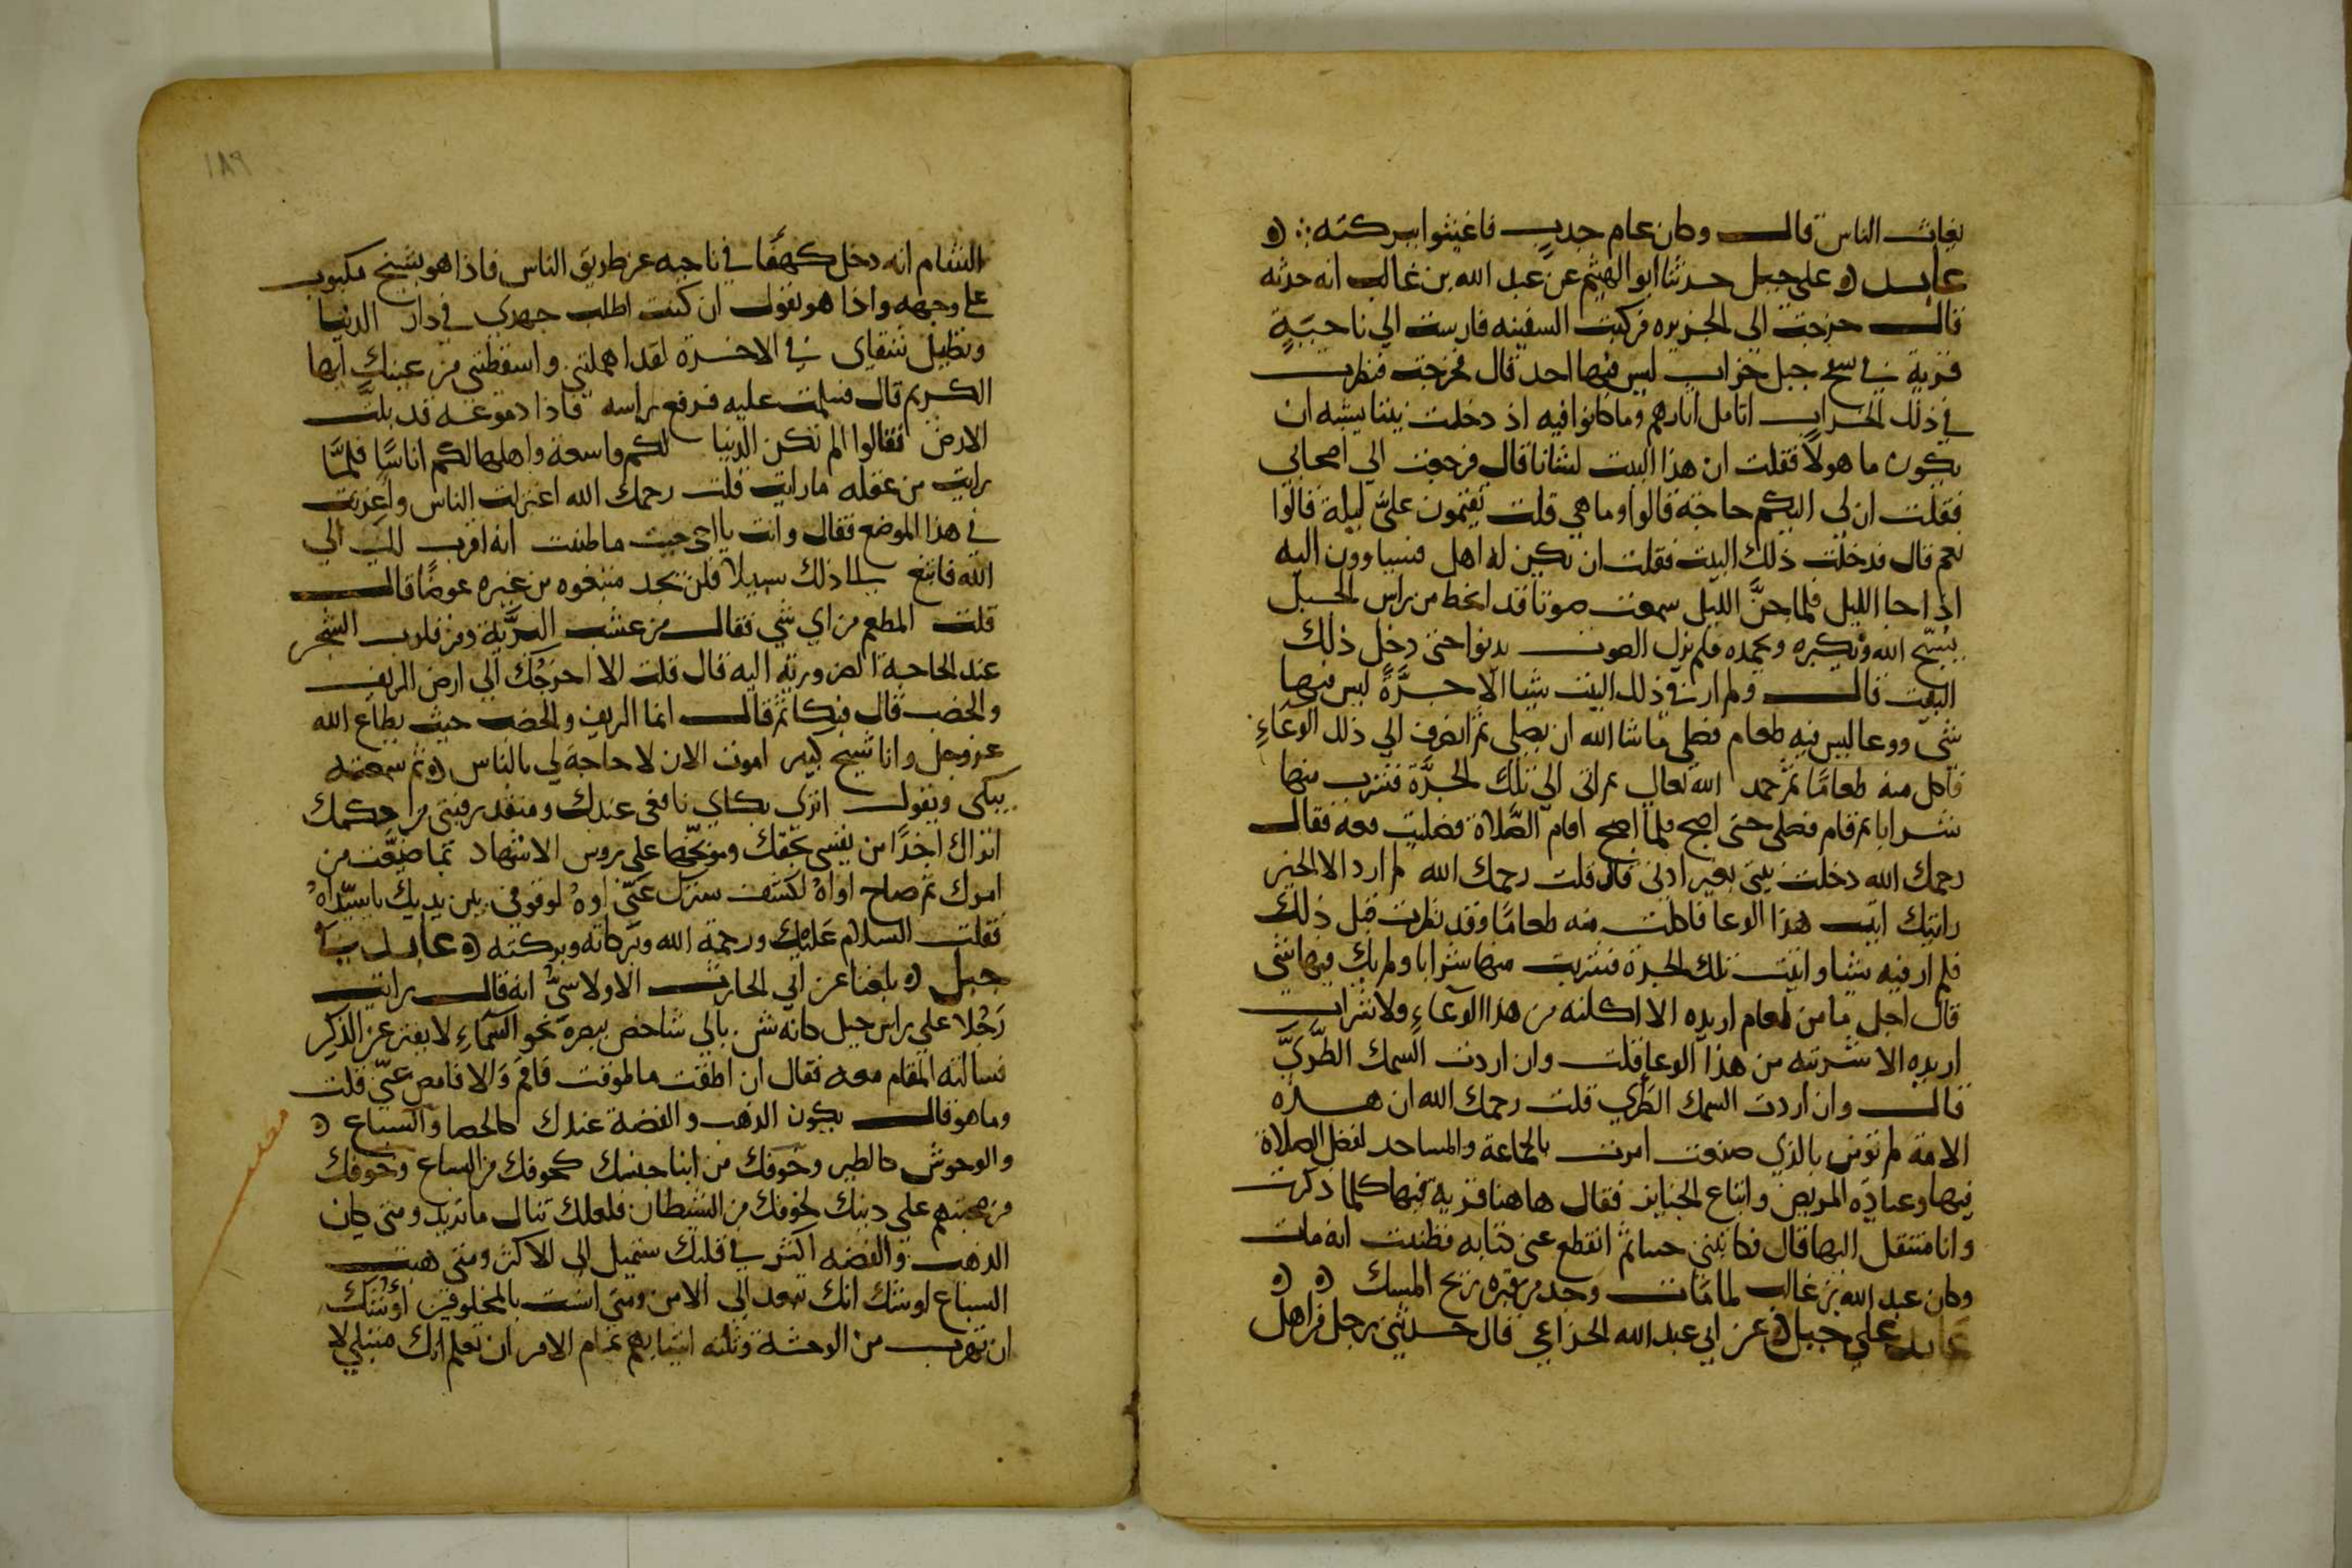 يغاث الناس قال وكان عام جدب فاغيثوا ببركته
عابد على جبل حدثنا ابو الهيثم عن عبد الله بن غالب انه حدثه
قال خرجت الى الجزيره فركبت السفينه فارست الي ناحيةٍ
قرية في سفح جبل خراب ليس فيها احد قال فخرجت فنظرت
في ذلك الخراب اتامل اثارهم وما كانوا فيه اذ دخلت بيتا يشبه ان
يكون ماهولاً فقلت ان هذا البيت لشانا قال فرجعت الي اصحابي
فقلت ان لي اليكم حاجة قالوا وما هي قلت تقيمون علىّ ليلة قالوا
نعم قال فدخلت ذلك البيت فقلت ان يكن له اهل فسياوون اليه
اذا جا الليل فلما جنَّ الليل سمعت صوتا قد انحط من راس الجبل
يسبّح الله ويكبره ويحمده فلم يزل الصوت يدنوا حتى دخل ذلك
البيت قال ولم ار في ذلك البيت شيا الّا جرَّةً ليس فيها
شي ووعا ليس فيه طعام فصلى ماشا الله ان يصلى ثم انصرف الي ذلك الوعاءِ
فاكل منه طعامًا ثم حمد الله تعالى ثم اتى الي تلك الجرَّة فشرب منها
شرابا ثم قام فصلى حتى اصبح فلما اصبح اقام الصَّلاة فصليت معه فقال
رحمك الله دخلت بيتي بغير اذني قال قلت رحمك الله لم ارد الا الخير
رايتك اتيت هذا الوعا فاكلت منه طعامًا وقد نظرت قبل ذلك
فلم ار فيه شيا واتيت تلك الجرة فشربت منها شرابا ولم يك فيها شي
قال اجل ما من طعام اريده الا اكلته من هذا الوعاءِ ولا شراب
اريده الا شربته من هذا الوعا قلت وان اردت السمك الطَّريَّ
قال وان اردت السمك الطري قلت رحمك الله ان هذه
الامة لم تومر بالذي صنعت امرت بالجماعة والمساجد لفضل الصلاة
فيها وعيادَه المريض واتباع الجنايز فقال هاهنا قرية فيها كلما ذكرت
وانا منتقل اليها قال فكاتبني حينا ثم انقطع عني كتابه فظننت انه مات
وكان عبد الله بن غالب لما مات وجد من قبره ريح المسك
عابد على جبل عن ابي عبد الله الخزاعي قال حدثني رجل من اهل
١٨٩
الشام انه دخل كهفًا في ناحيه عن طريق الناس فاذا هو بشيخ مكبوب
على وجهه واذا هو يقول ان كنت اطلت جهدي في دار الدنيا
وتطيل شقاي في الاخرة لقد اهملتني واسقطتني من عينك ايها
الكريم قال فسلمت عليه فرفع راسه فاذا دموعه قد بلت
الارض فقالوا الم تكن الدنيا لكم واسعة واهلها لكم اناسًا فلمّا
رايت من عقله ما رايت قلت رحمك الله اعتزلت الناس واغربت
في هذا الموضع فقال وانت يا اخي حيث ما ظننت انه اقرب لك الي
الله فابتغ الى ذلك سبيلا فلن تجد مبتغوه من غيره عوضًا قال
قلت المطعم من اي شي فقال من عشب البرَّية ومن قلوب الشجر
عند الحاجة الضرورية اليه قال قلت الا اخرجُك الي ارض الريف
والخصب قال فبكا ثم قال انما الريف والخصب حيث يطاع الله
عز وجل وانا شيخ كبير اموت الان لا حاجة لي بالناس ثم سمعته
يبكى ويقول اترى بكاي نافعي عندك ومنقذ رقبتي من حكمك
اتراك اخذًا من نفسى بحقك وموبّخها على روس الاشهاد بما ضيَّعت من
امرك ثم صاح اواهُ لكشف سترك عَنّي اوهُ لوقوفي بين يديك يا سيّداهُ
فقلت السلام عَليك ورحمة الله وبركاته وبركته عابد في
جبل بلغنا عن ابي الحارث الاولاسيُّ انه قال رايت
رَجُلا على راس جبل كانه شن بالي شاخص ببصره نحو السماءِ لا يفتر عن الذكر
فسالته المقام معه فقال ان اطقت ما طوقت فاقم وَالا فامض عنّي قلت
وما هو قال يكون الذهب والفضة عندك كالحصا والسباع
والوحوش كالطير وخوفك من ابنا جنسك كخوفك من السباع وخوفك
من صحبتهم على دينك كخوفك من الشيطان فلعلك تنال ما تريد ومتى كان
الذهب والفضه اكثر في قلبك ستميل الى الاكثر ومتى هبت
السباع اوشك انك تعود الي الامن ومتى انست بالمخلوقين اوشك
ان تهرب من الوحشة وثلثه اشيا بهم تمام الامر ان تعلم انك مبتلى لا